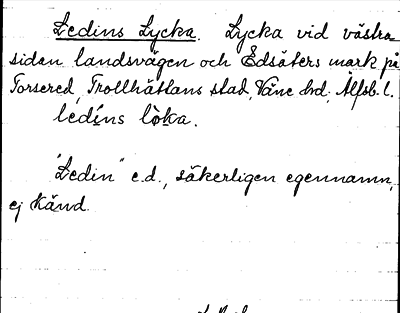 Ledins Lycka. Lycka vid västra
sidan landsvägen och Edsäters mark på
Torsered, Trollhättans stad, Väne hd, Älfsb. l.
ledíns lỳka.
"Ledin" e.d., säkerligen egennamn,
ej känd.